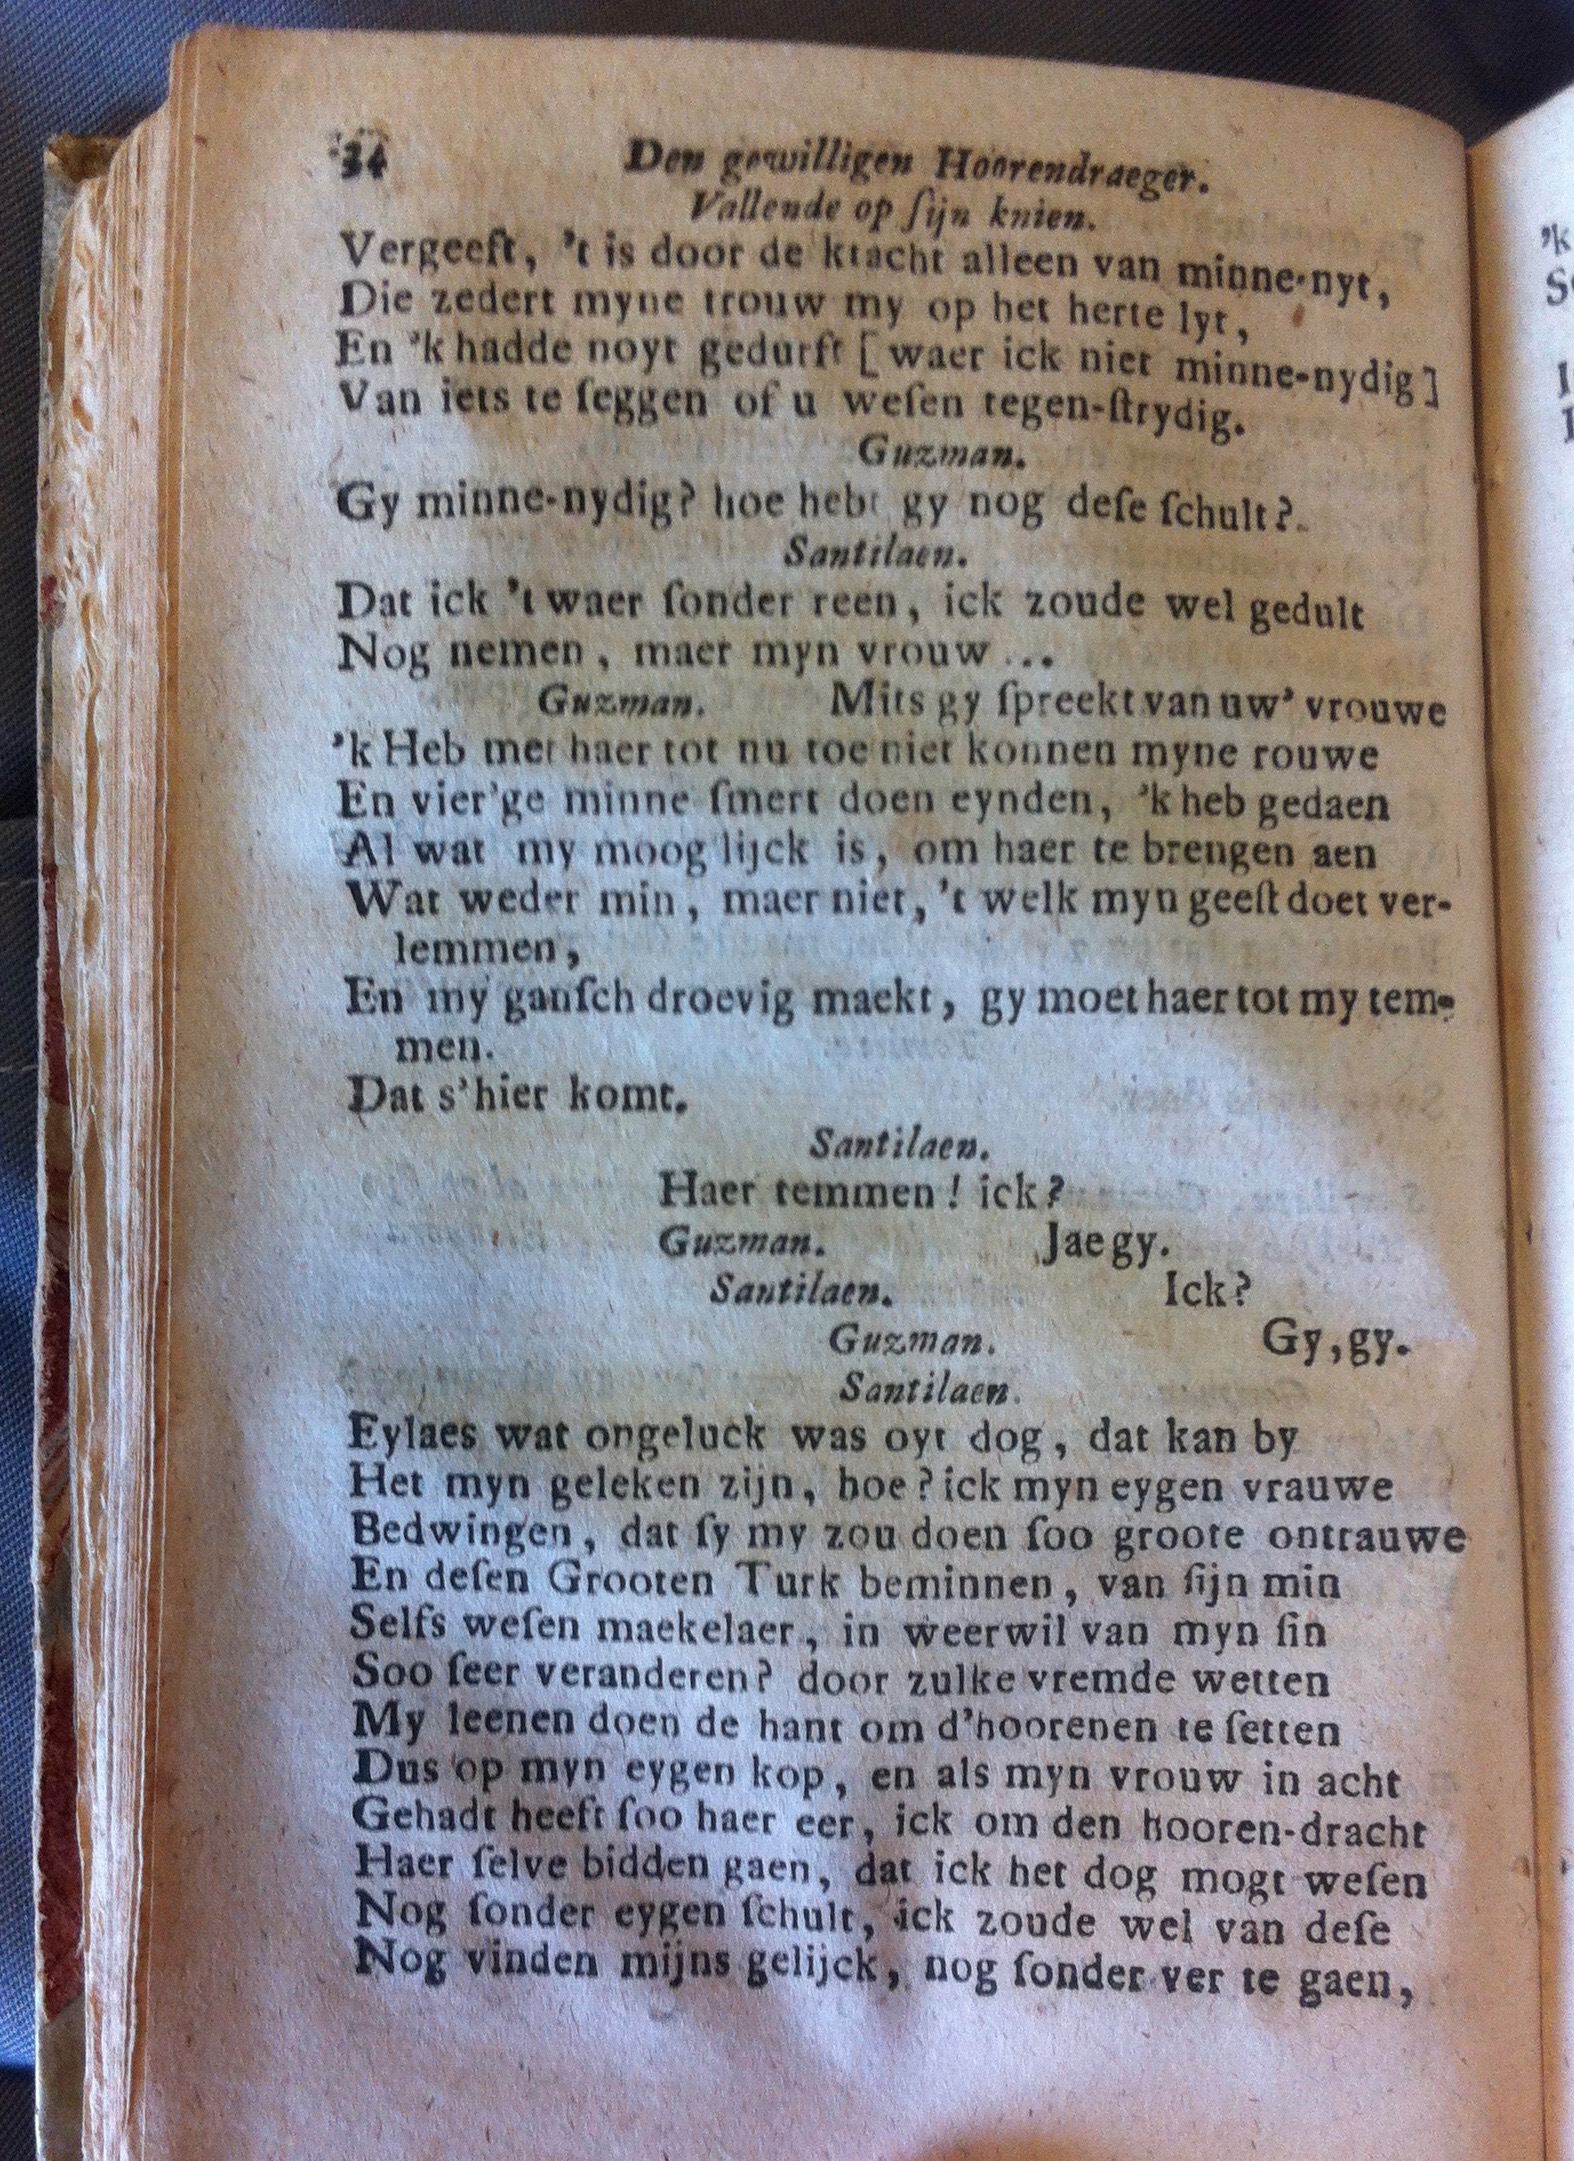 34 Den gewilligen Hoorendraeger.
Vallende op ſijn knien.
Vergeeft, 't is door de kracht alleen van minne-nyt,
Die zedert myne trouw my op het herte lyt,
En 'k hadde noyt gedurft [ waer ick niet minne-nydig ]
Van iets te ſeggen of u weſen tegen-ſtrydig.
Guzman.
Gy minne-nydig? hoe hebt gy nog deſe ſchult?
Santilaen.
Dat ick 't waer ſonder reen, ick zoude wel gedult
Nog nemen, maer myn vrouw ...
Guzman. Mits gy ſpreekt van uw' vrouwe
'k Heb met haer tot nu toe niet konnen myne rouwe
En vier'ge minne ſmert doen eynden, 'k heb gedaen
Al wat my moog'lijck is, om haer te brengen aen
Wat weder min, maer niet, 't welk myn geeſt doet ver-
lemmen,
En my ganſch droevig maekt, gy moet haer tot my tem-
men.
Dat s'hier komt.
Santilaen.
Haer temmen! ick?
Guzman. Jae gy.
Santilaen. Ick?
Guzman. Gy, gy.
Santilaen.
Eylaes wat ongeluck was oyt dog, dat kan by
Het myn geleken zijn, hoe? ick myn eygen vrauwe
Bedwingen, dat ſy my zou doen ſoo groote ontrauwe
En deſen Grooten Turk beminnen, van ſijn min
Selfs weſen maekelaer, in weerwil van myn ſin
Soo ſeer veranderen? door zulke vremde wetten
My leenen doen de hant om d'hoorenen te ſetten
Dus op myn eygen kop, en als myn vrouw in acht
Gehadt heeft ſoo haer eer, ick om den hooren-dracht
Haer ſelve bidden gaen, dat ick het dog mogt weſen
Nog ſonder eygen ſchult, ick zoude wel van deſe
Nog vinden mijns gelijck, nog ſonder ver te gaen,